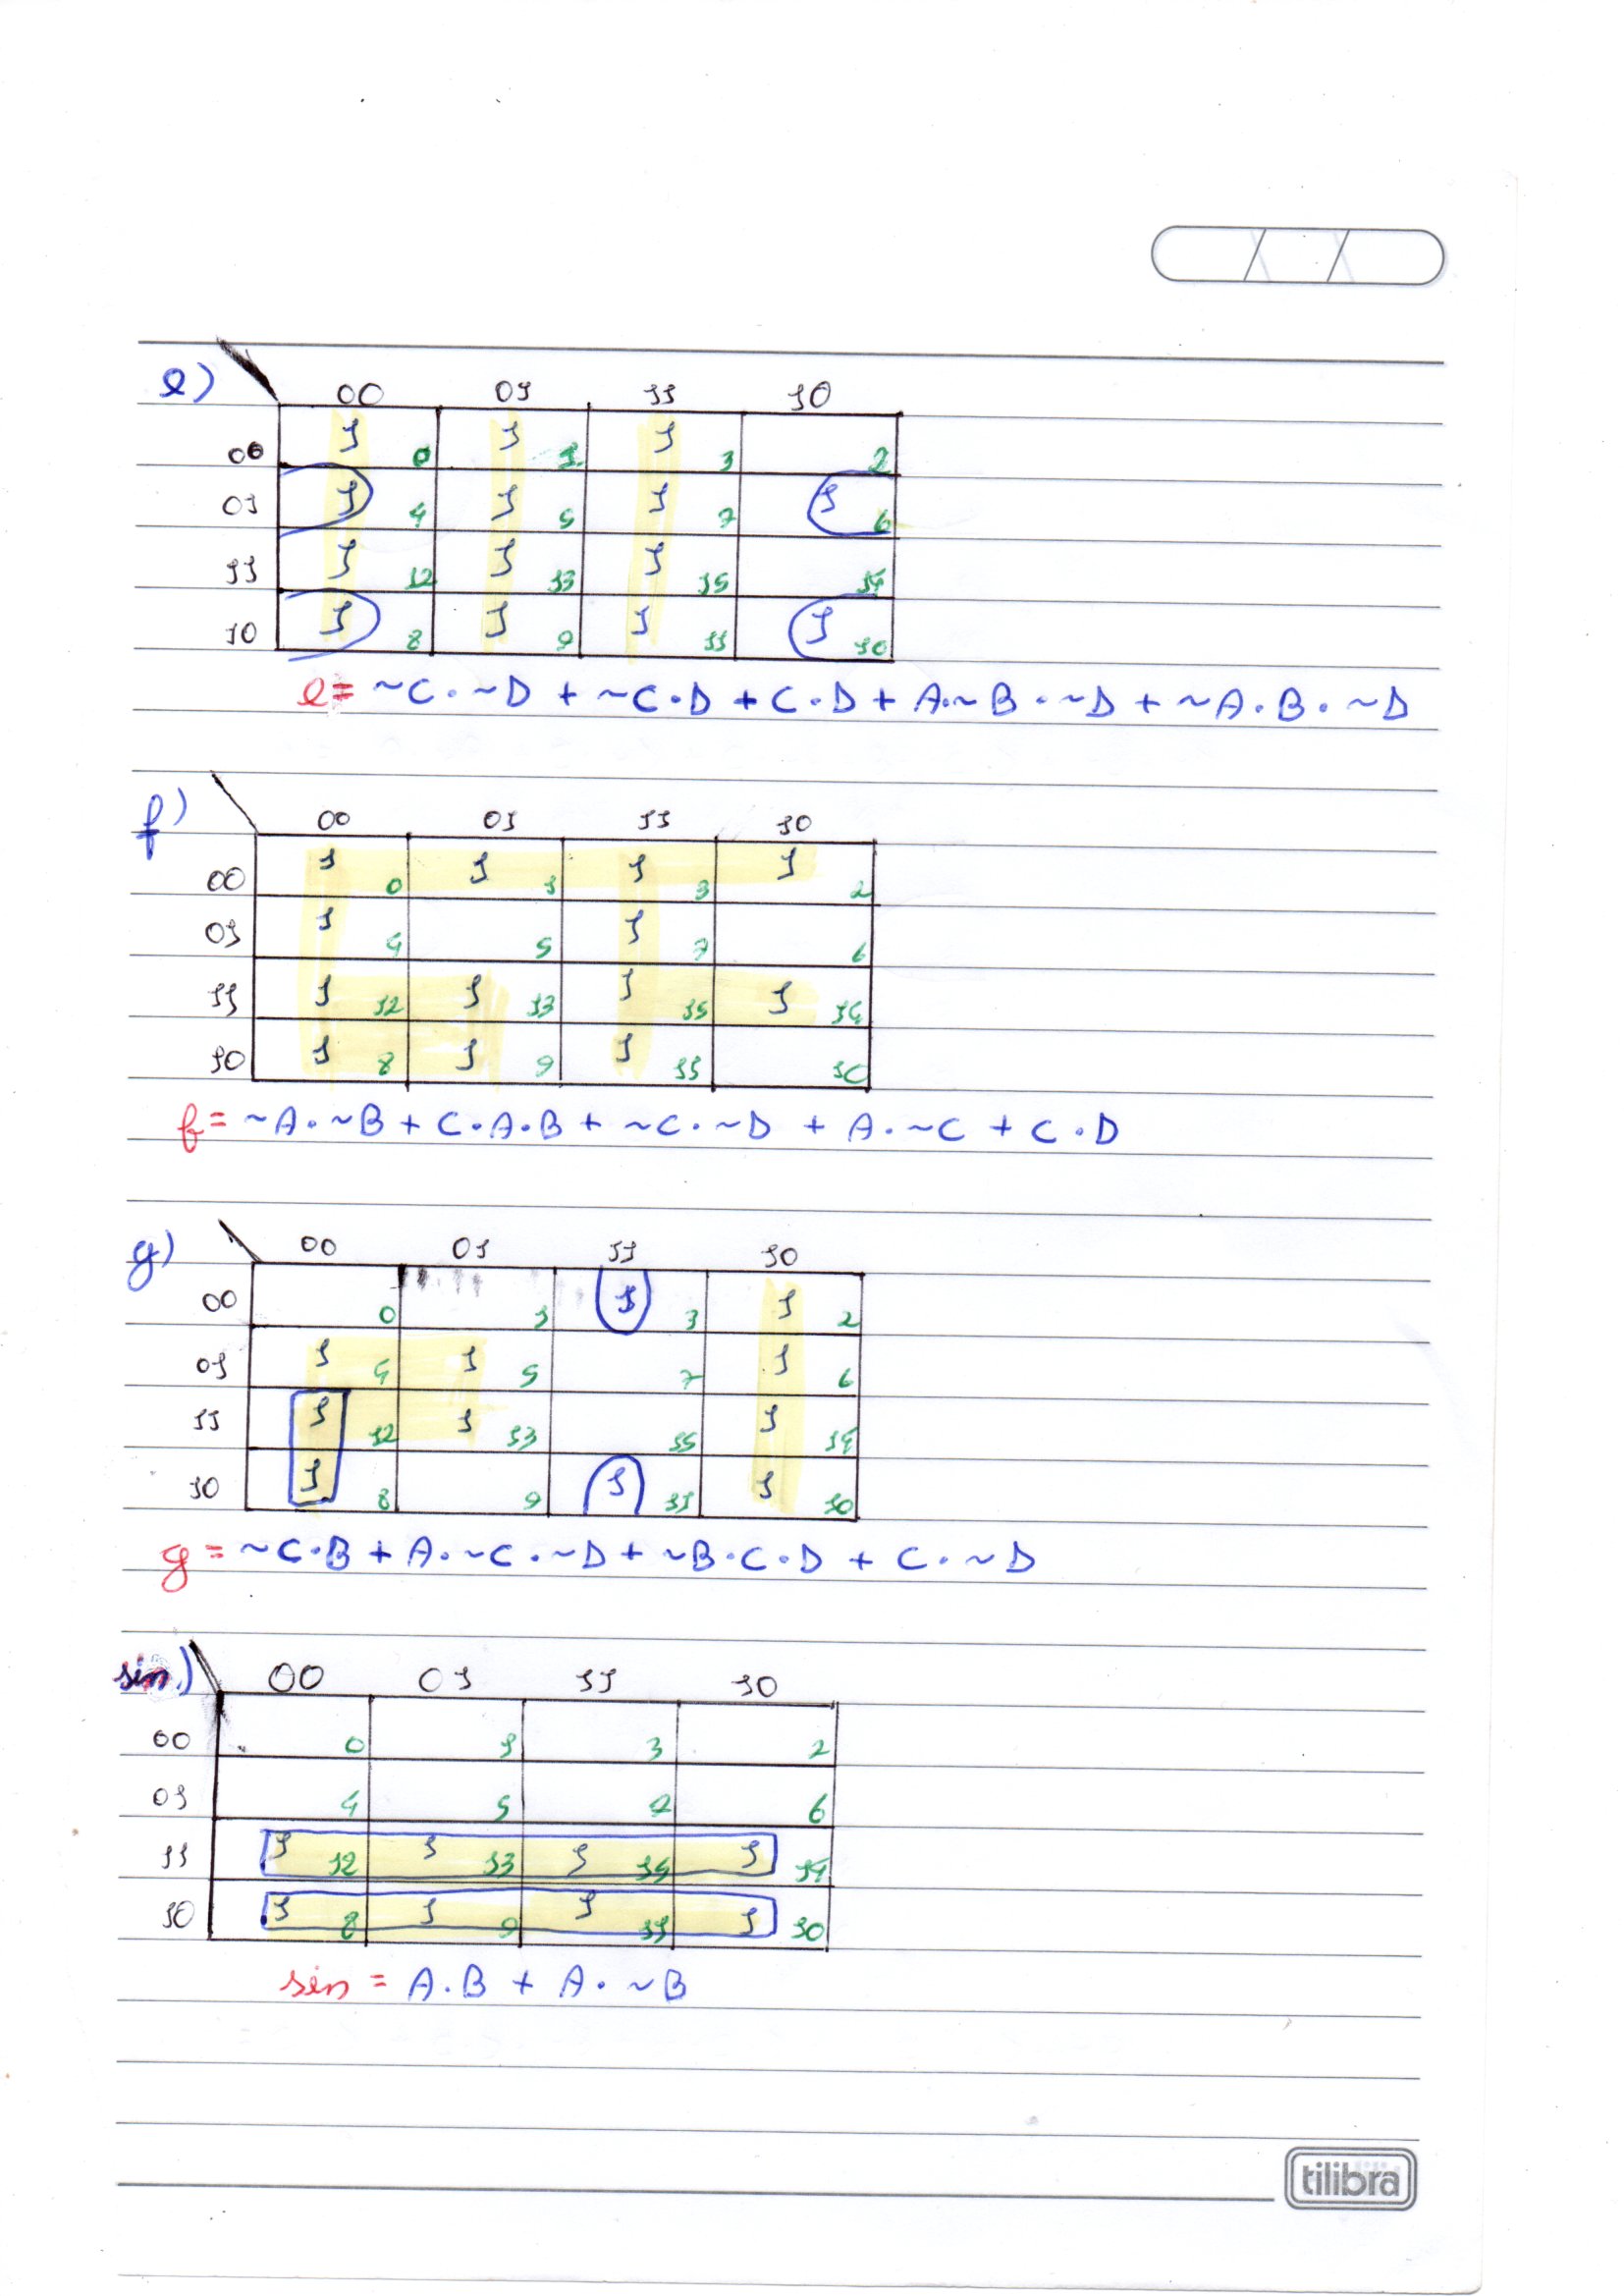 e)
00 01 11 10
00 1 0 1 1 1 3 2
01 1 4 1 5 1 7 1 6
11 1 12 1 13 1 15 14
10 1 8 1 9 1 11 1 10
e = ~C . ~D + ~C . D + C . D + A . ~B . ~D + ~A . B . ~D
f)
00 01 11 10
00 1 0 1 1 1 3 1 2
01 1 4 5 1 7 6
11 1 12 1 13 1 15 1 14
10 1 8 1 9 1 11 10
f = ~A . ~B + C . A . B + ~C . ~D + A . ~C + C . D
g)
00 01 11 10
00 0 1 1 3 1 2
01 1 4 1 5 7 1 6
11 1 12 1 13 15 1 14
10 1 8 9 1 11 1 10
g = ~C . B + A . ~C . ~D + ~B . C . D + C . ~D
sin)
00 01 11 10
00 0 1 3 2
01 4 5 7 6
11 1 12 1 13 1 15 1 14
10 1 8 1 9 1 11 1 10
sin = A . B + A . ~B
tilibra